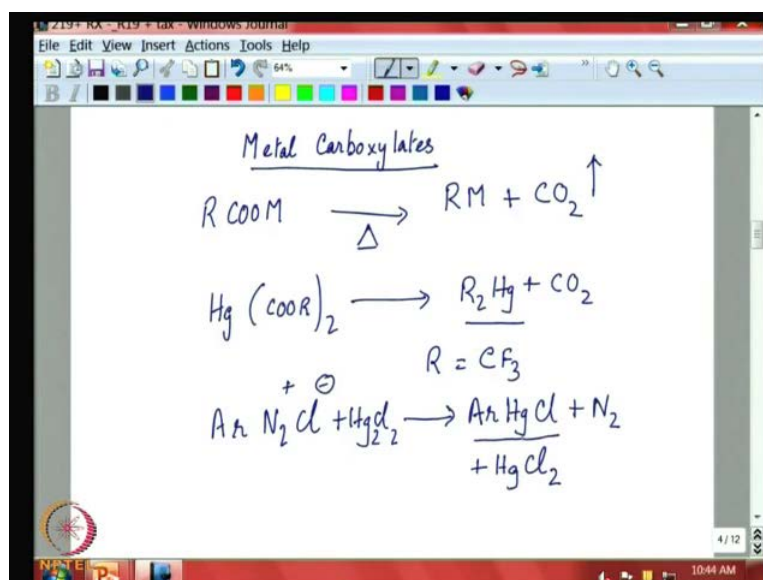 219+ RX - R19 + tax - Windows Journal
File Edit View Insert Actions Tools Help
64%
B I
Metal Carboxylates
RCOOM →Δ RM + CO₂ ↑
Hg (COOR)₂ → R₂Hg + CO₂
R = CF₃
Ar N₂⁺ Cl⊖ + Hg₂Cl₂ → ArHgCl + N₂
+ HgCl₂
4 / 12
NPTEL
10:44 AM